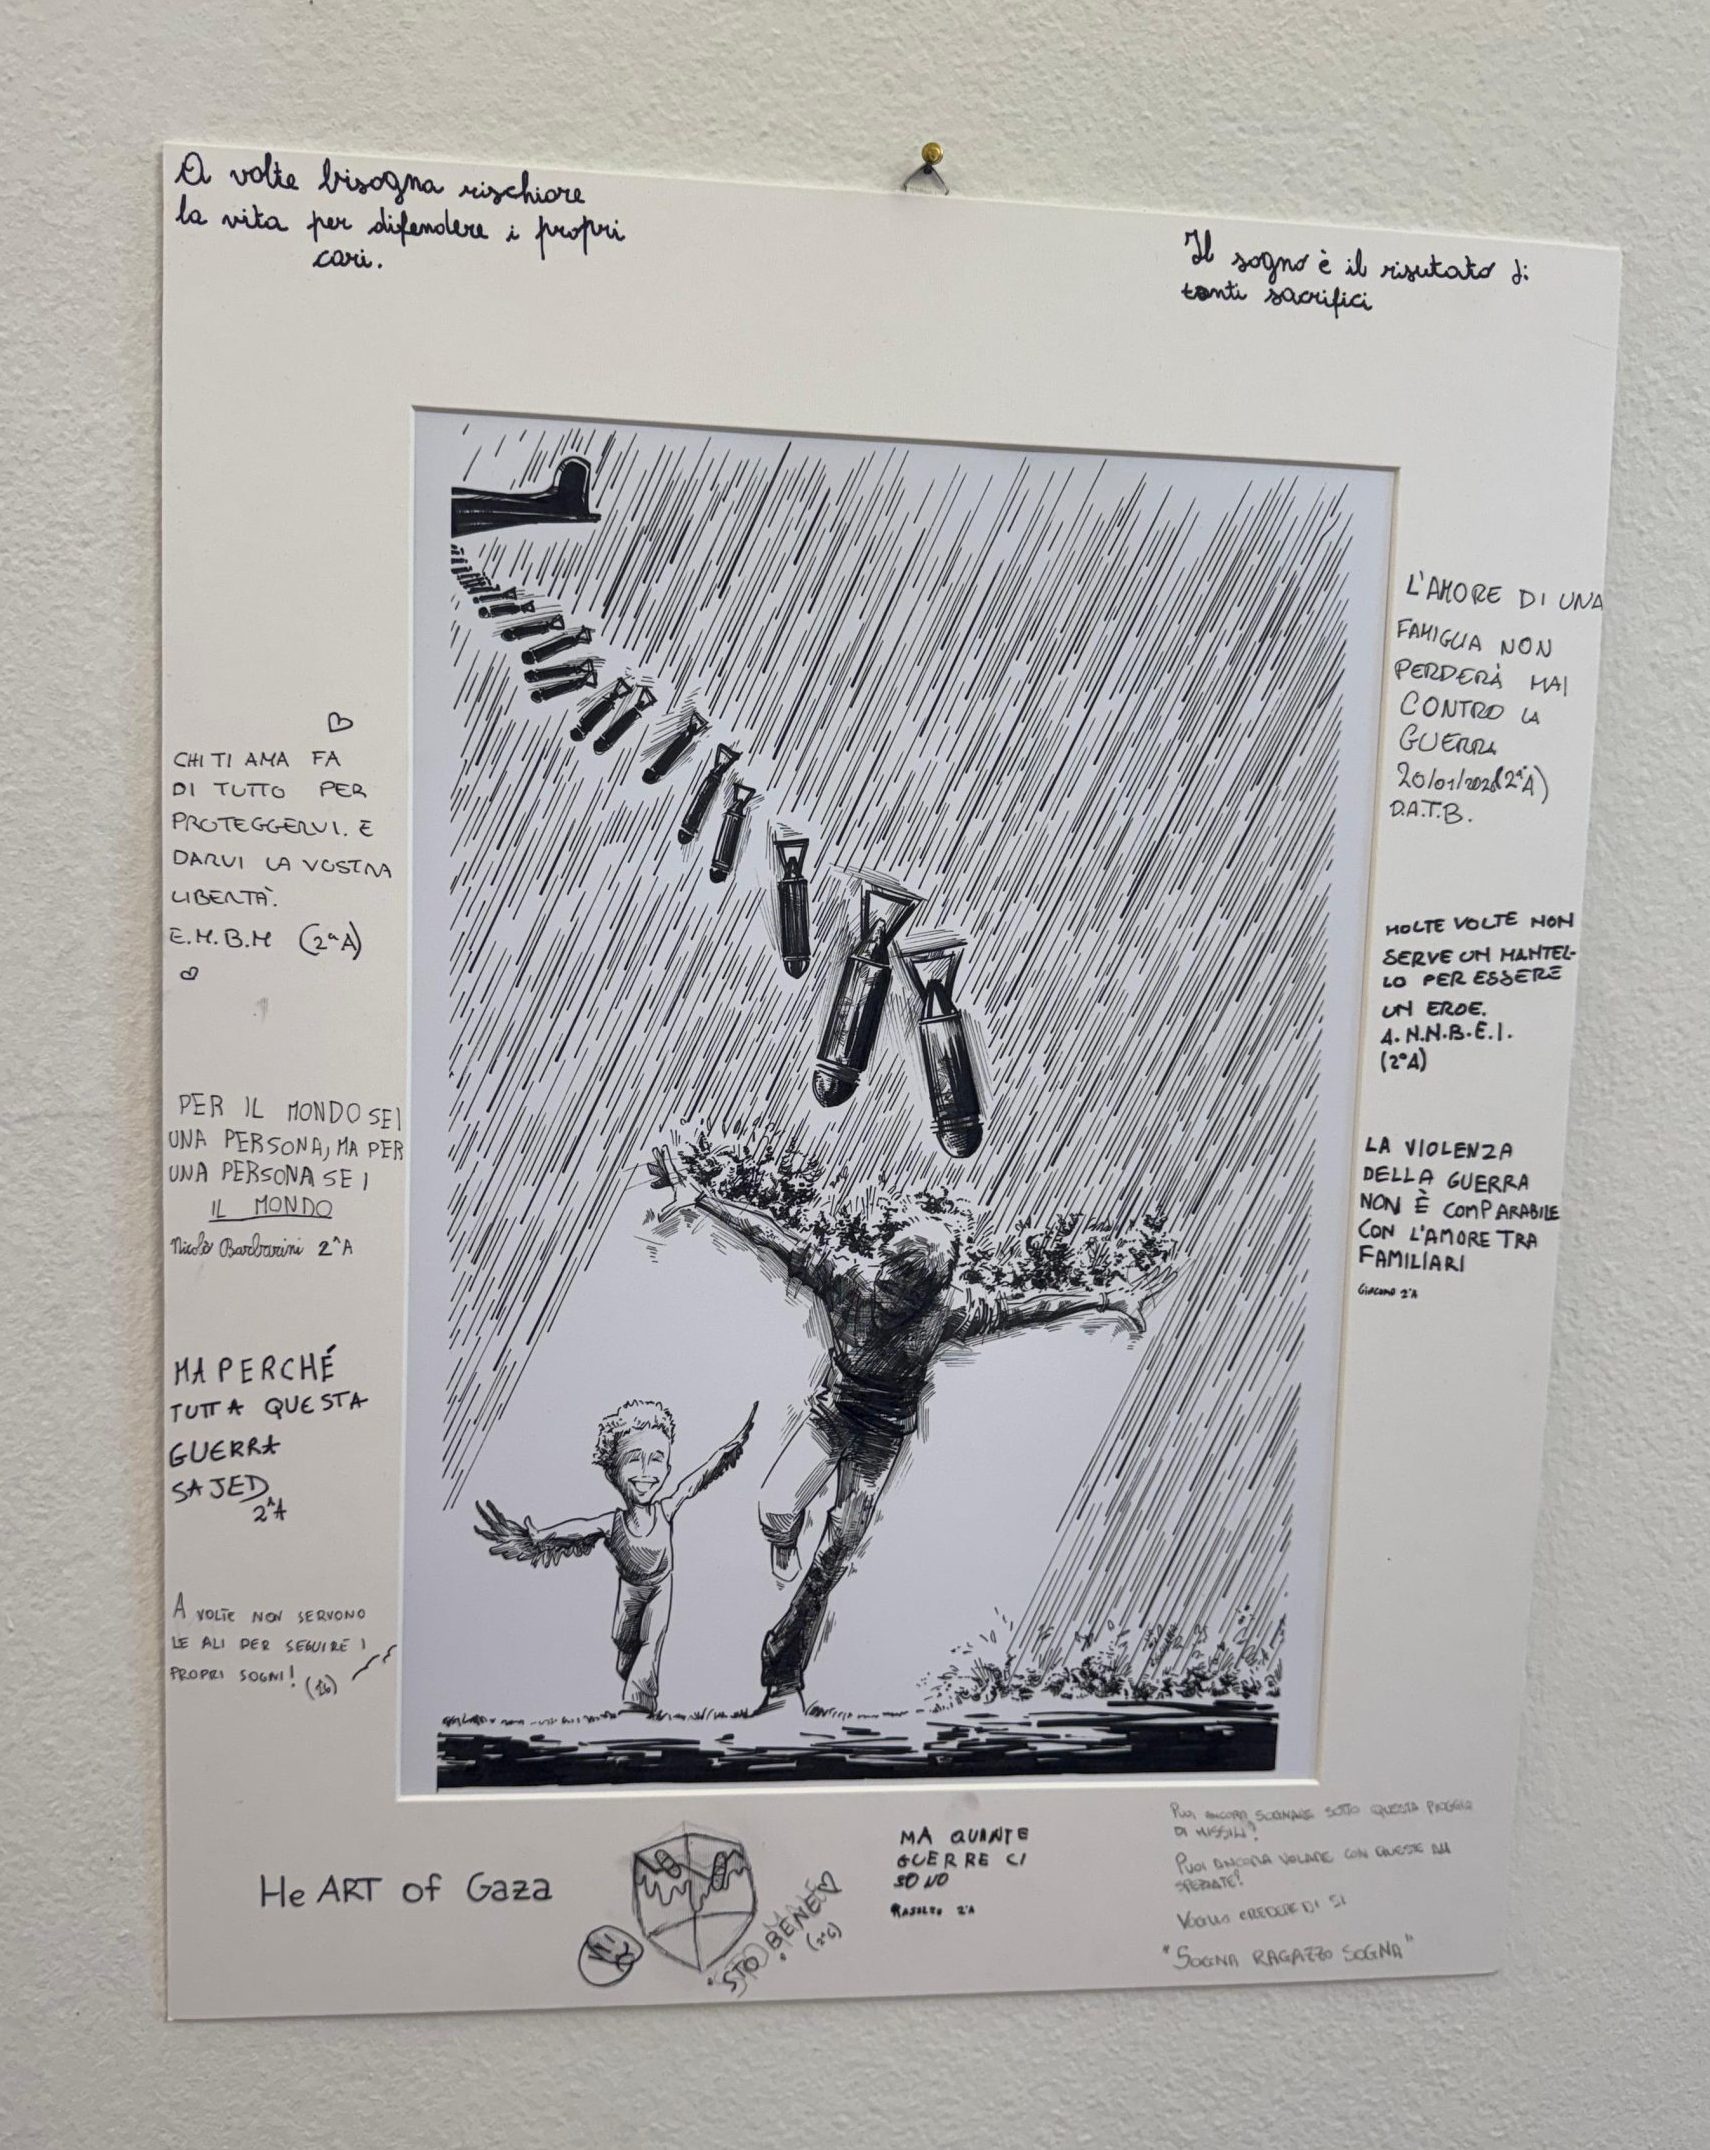 A volte bisogna rischiare
la vita per difendere i propri
cari.
Il sogno è il risutato di
tanti sacrifici
CHI TI AMA FA
DI TUTTO PER
PROTEGGERVI. E
DARVI LA VOSTRA
LIBERTÀ.
E.M.B.M (2ªA)
PER IL MONDO SEI
UNA PERSONA, MA PER
UNA PERSONA SEI
IL MONDO
Nicolò Barbarini 2^A
MA PERCHÉ
TUTTA QUESTA
GUERRA
SAJED
2^A
A VOLTE NON SERVONO
LE ALI PER SEGUIRE I
PROPRI SOGNI!
L'AMORE DI UNA
FAMIGLIA NON
PERDERÀ MAI
CONTRO LA
GUERRA
20/01/2026 (2ªA)
D.A.T.B.
MOLTE VOLTE NON
SERVE UN MANTEL-
LO PER ESSERE
UN EROE.
A.N.N.B.E.I.
(2ªA)
LA VIOLENZA
DELLA GUERRA
NON È COMPARABILE
CON L'AMORE TRA
FAMILIARI
Giacomo 2ªA
HeART of Gaza
STO BENE
MA QUANTE
GUERRE CI
SONO
2ªA
PUOI ANCORA SOGNARE SOTTO QUESTA PIOGGIA
DI MISSILI?
PUOI ANCORA VOLARE CON QUESTE ALI
SPEZZATE?
VOGLIO CREDERE DI SI
"SOGNA RAGAZZO SOGNA"